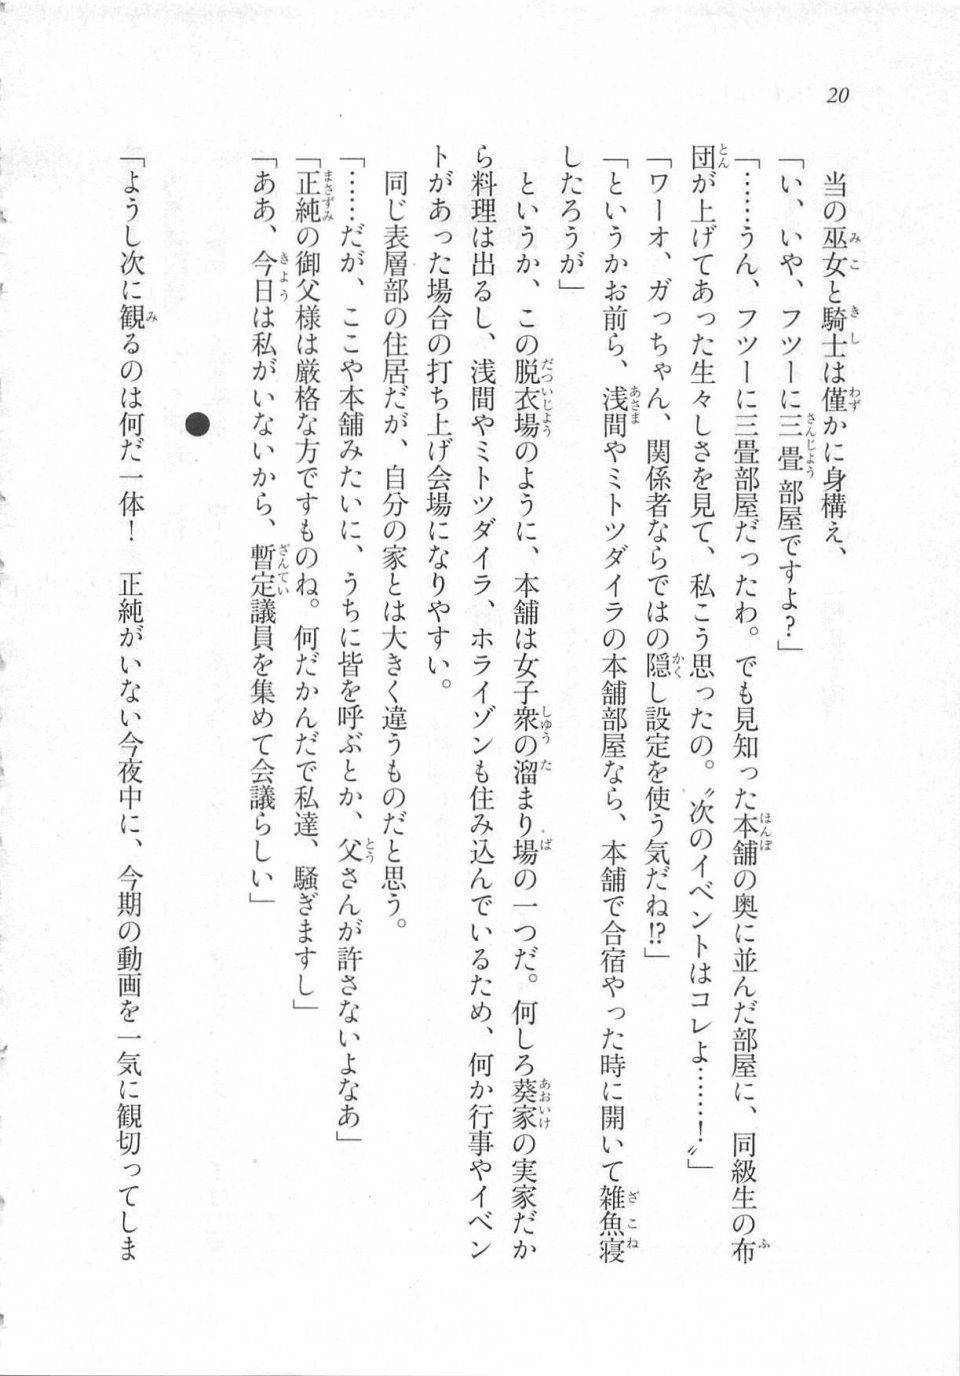 20
当の巫女と騎士は僅かに身構え、
「い、いや、フツーに三畳部屋ですよ?」
「……うん、フツーに三畳部屋だったわ。でも見知った本舗の奥に並んだ部屋に、同級生の布
団が上げてあった生々しさを見て、私こう思ったの。〝次のイベントはコレよ……！〟」
「ワーオ、ガっちゃん、関係者ならではの隠し設定を使う気だね⁉」
「というかお前ら、浅間やミトツダイラの本舗部屋なら、本舗で合宿やった時に開いて雑魚寝
したろうが」
というか、この脱衣場のように、本舗は女子衆の溜まり場の一つだ。何しろ葵家の実家だか
ら料理は出るし、浅間やミトツダイラ、ホライゾンも住み込んでいるため、何か行事やイベン
トがあった場合の打ち上げ会場になりやすい。
同じ表層部の住居だが、自分の家とは大きく違うものだと思う。
「……だが、ここや本舗みたいに、うちに皆を呼ぶとか、父さんが許さないよなあ」
「正純の御父様は厳格な方ですものね。何だかんだで私達、騒ぎますし」
「ああ、今日は私がいないから、暫定議員を集めて会議らしい」
●
「ようし次に観るのは何だ一体！　正純がいない今夜中に、今期の動画を一気に観切ってしま